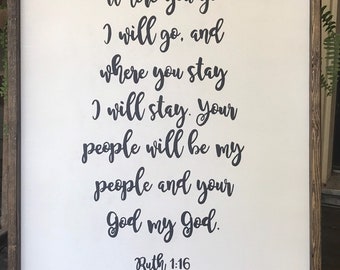 where you go
I will go, and
where you stay
I will stay. Your
people will be my
people and your
God my God.
Ruth 1:16